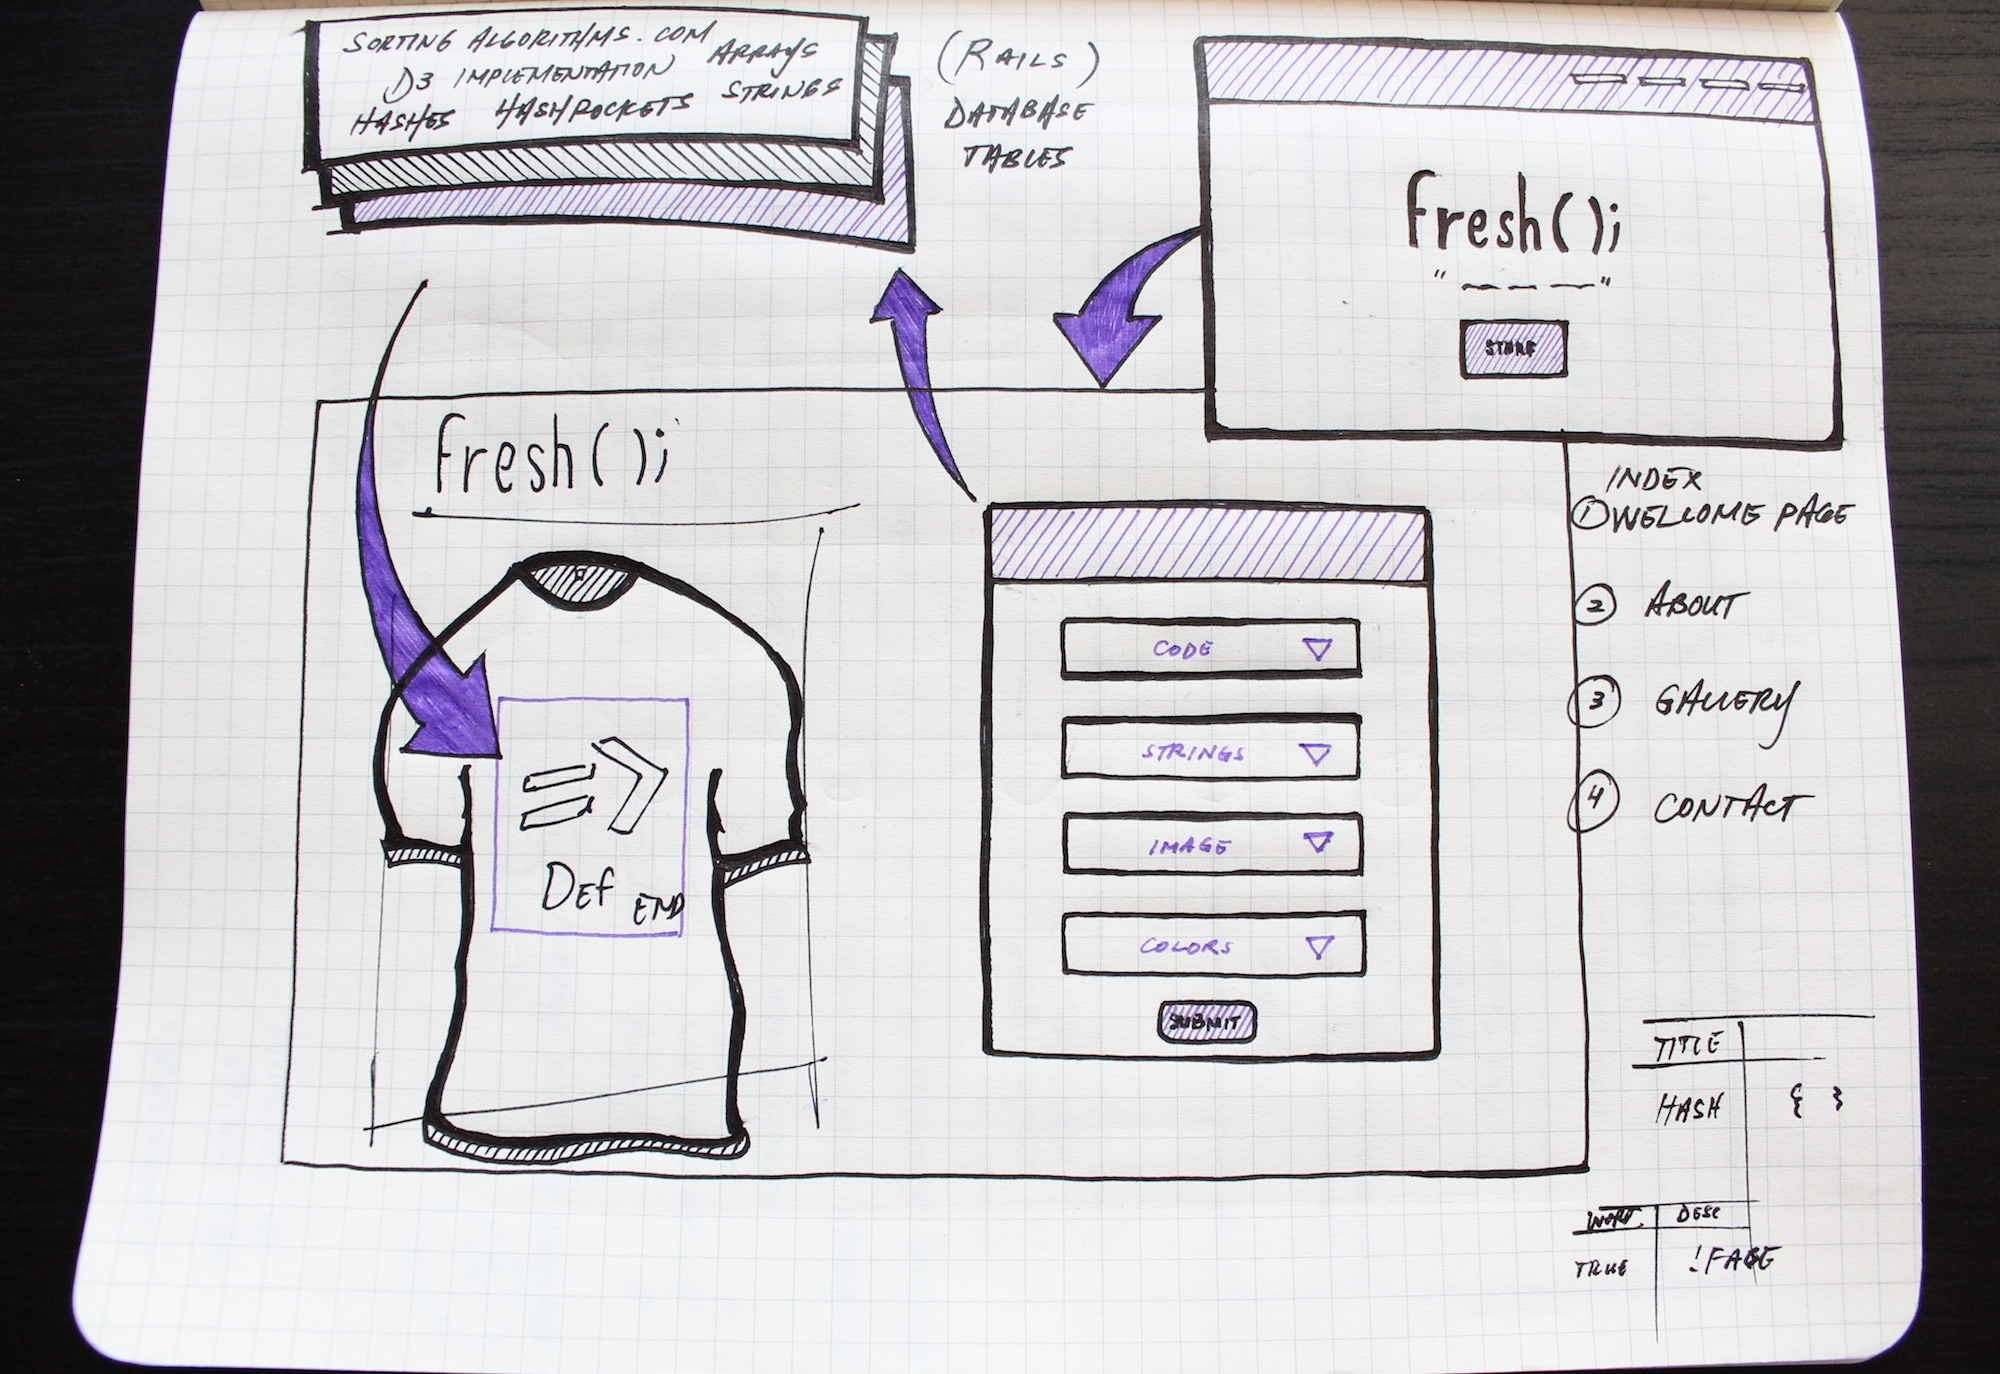 SORTING ALGORITHMS.COM
D3 IMPLEMENTATION ARRAYS
HASHES HASHROCKETS STRINGS
(RAILS)
DATABASE
TABLES
fresh();
"       "
fresh();
F
=>
DEF
END
CODE
STRINGS
IMAGE
COLORS
SUBMIT
INDEX
① WELCOME PAGE
② ABOUT
③ GALLERY
④ CONTACT
TITLE
HASH { }
DESC
TRUE